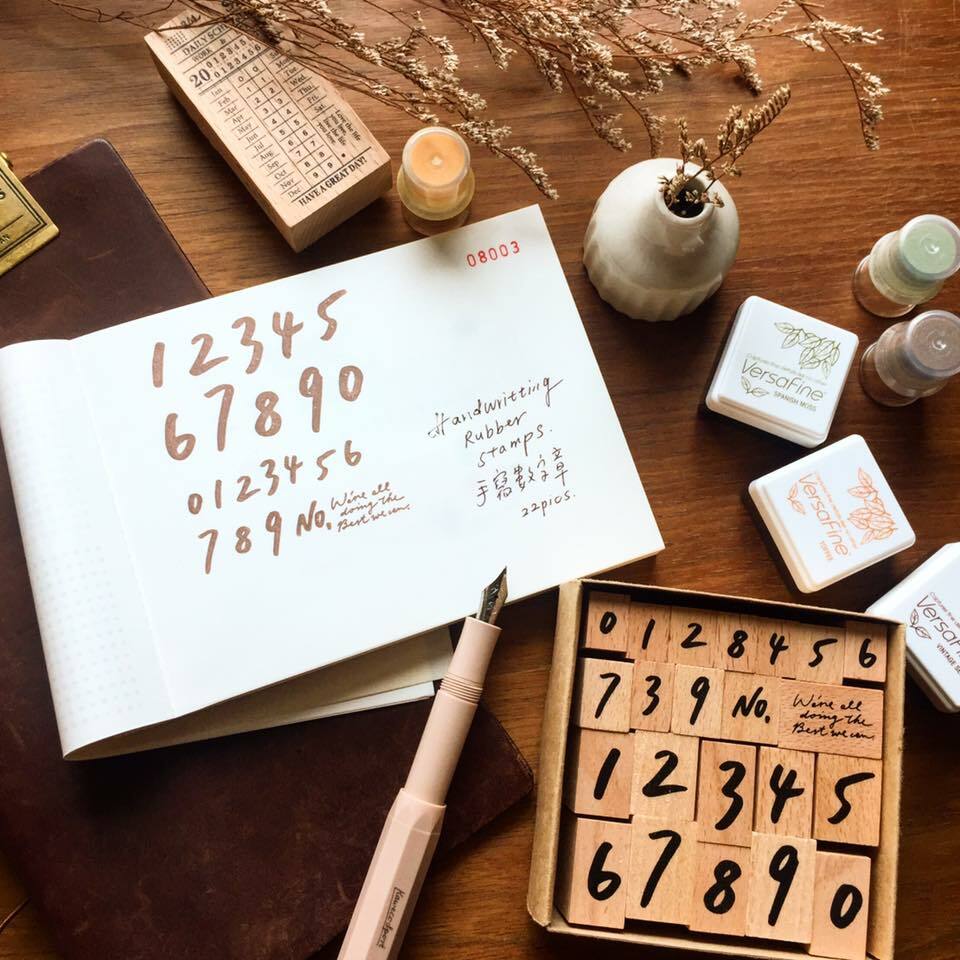 DAILY SCH
WORK
20 0 1 2 3 4 5 6
0 1 2 3 4 5 6
Jan
Feb
Mar
Apr
May
Jun
Jul
Aug
Sep
Oct
Nov
Dec
Mon.
Tue.
Wed.
Thu.
Fri.
Sat.
Sun.
HAVE A GREAT DAY!
08003
1 2 3 4 5
6 7 8 9 0
0 1 2 3 4 5 6
7 8 9 No. We're all
doing the
Best we can.
Handwritting
Rubber
Stamps.
手寫數字章
22pics.
VersaFine
SPANISH MOSS
VersaFine
VersaFine
VINTAGE SE
Kaweco Sport
0 1 2 8 4 5 6
7 3 9 No. We're all
doing the
Best we can.
1 2 3 4 5
6 7 8 9 0